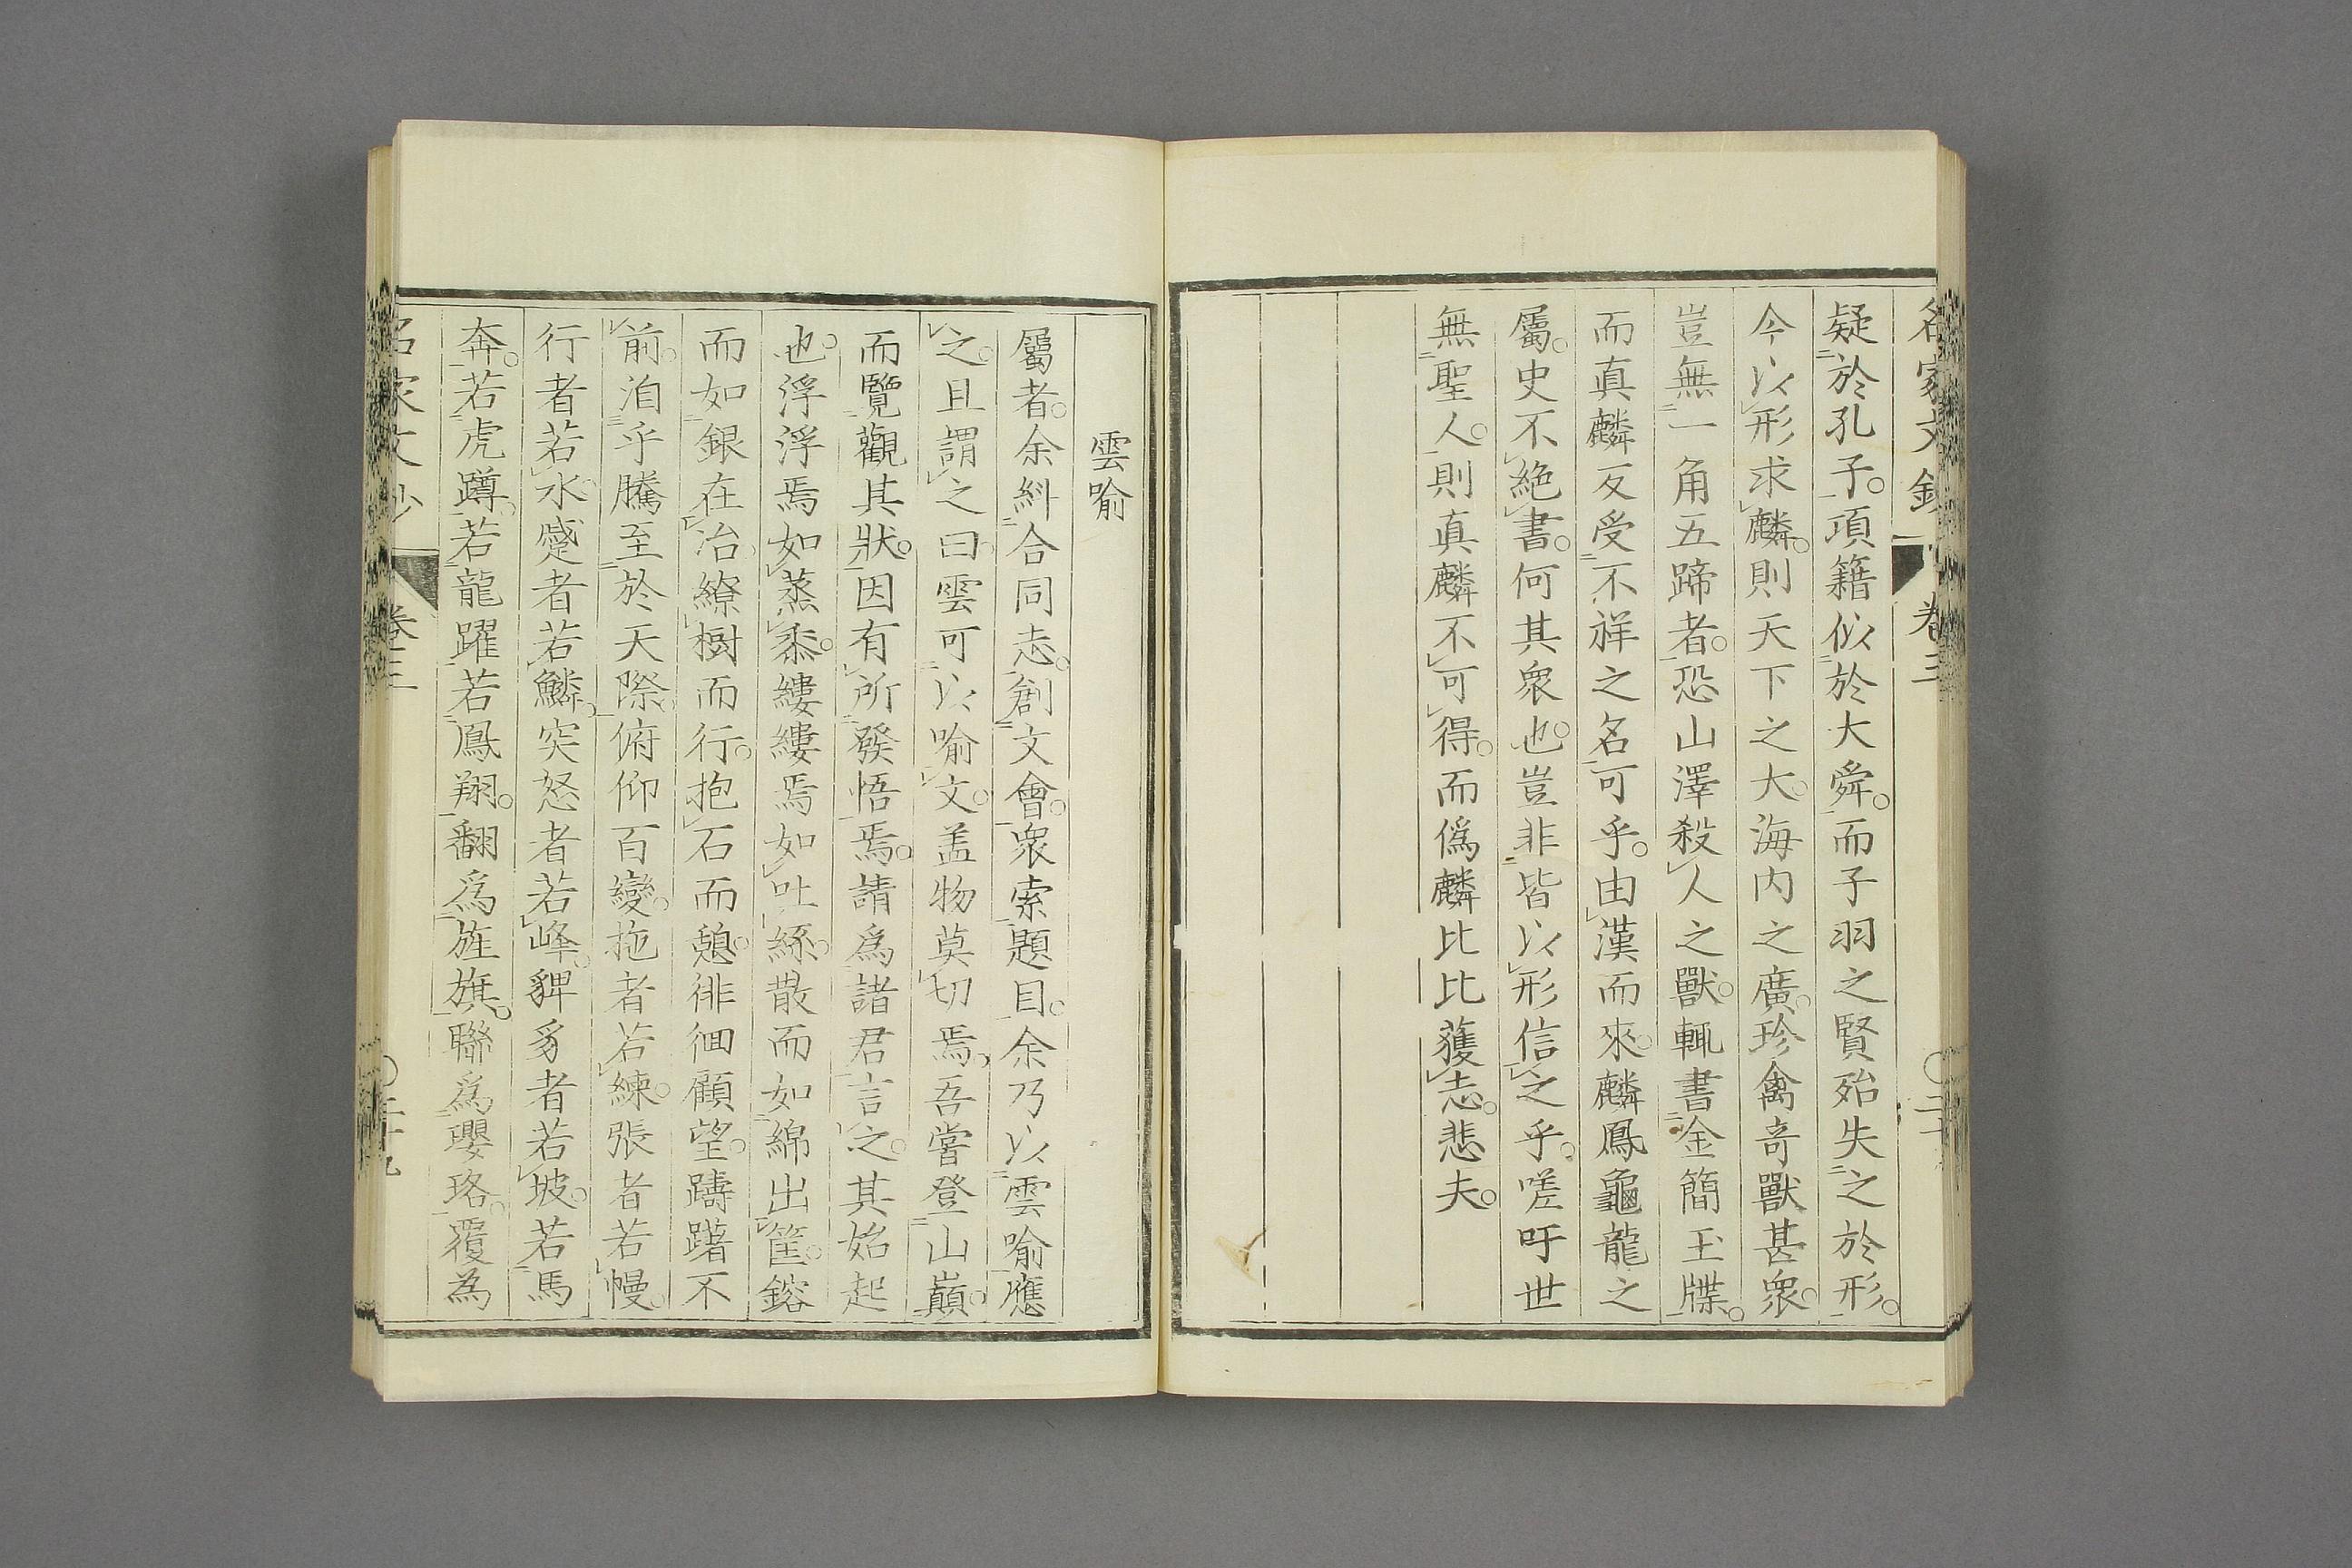 名家文鈔 卷三 〇二十
疑於孔子。項籍似於大舜。而子羽之賢殆失之於形。
今以形求麟。則天下之大。海內之廣。珍禽奇獸甚衆。
豈無一角五蹄者。恐山澤殺人之獸。輒書金簡玉牒。
而真麟反受不祥之名可乎。由漢而來。麟鳳龜龍之
屬。史不絕書。何其衆也。豈非皆以形信之乎。嗟吁世
無聖人。則真麟不可得。而僞麟比比獲志。悲夫。
雲喻
屬者。余糾合同志。創文會。衆索題目。余乃以雲喻應
之。且謂之曰。雲可以喻文。盖物莫切焉。吾嘗登山巔。
而覽觀其狀。因有所發悟焉。請爲諸君言之。其始起
也。浮浮焉如蒸黍。縷縷焉如吐絲。散而如綿出筐。鎔
而如銀在冶。繚樹而行。抱石而憩。徘徊顧望。躊躇不
前。洎乎騰至於天際。俯仰百變。拖者若練。張者若幔。
行者若水。蹙者若鱗。突怒者若峰。髀豸者若坡。若馬
奔。若虎蹲。若龍躍。若鳳翔。翻爲旌旗。聯爲瓔珞。覆為
名家文鈔 卷三 〇二十九